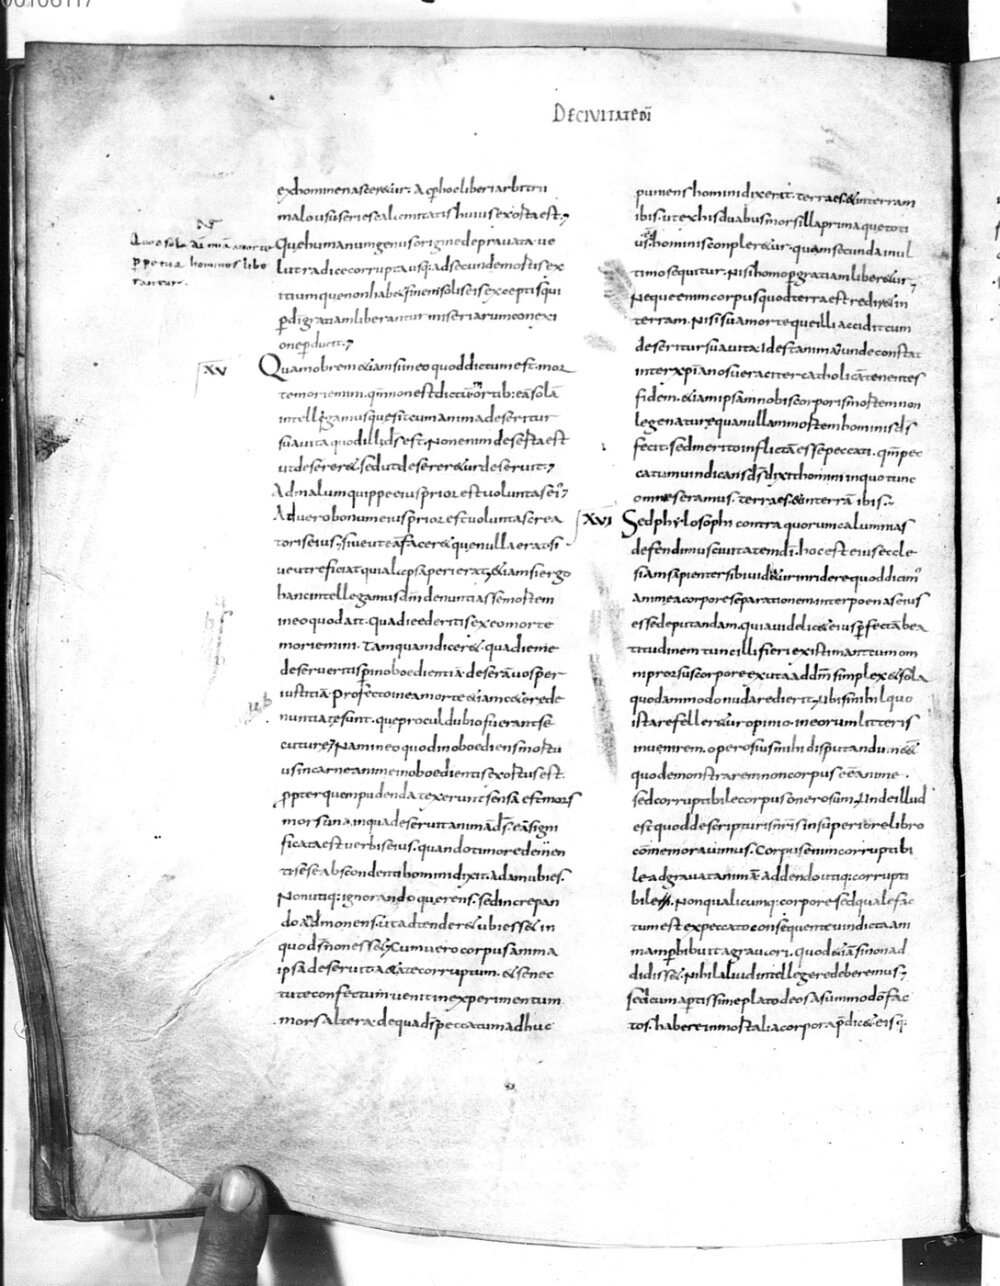 00106117
DE CIVITATE DĪ
ex homine nasceretur. Ac per hoc liberi arbitrii
malo usu series calamitatis huius exorta est;
Que humanum genus origine depravata ve
lut radice corrupta usq; ad secunde mortis ex
itium que non habet finem solis eis exceptis qui
per dī gratiam liberantur miseriarum conexi
one perducit;
Quo sola dī mīa a morte
perpetua homines libe
rantur.
XV
Quam obrem etiam si in eo quod dictum est. mor
te moriemini. qm̄ non est dictum mortib; eā solā
intellegamus que fit cum anima deseritur
sua vita quod illi dś est. Non enim deserta est
ut desereret. sed ut desereretur deseruit;
Ad malum quippe eius prior est voluntas ei';
Ad vero bonum eius prior est voluntas crea
toris eius, sive ut eā faceret que nulla erat si
ve ut reficiat quia lapsa perierat; etiam si ergo
hanc intellegamus dm̄ denuntiasse mortem
in eo quod ait. qua die ederitis ex eo morte
moriemini. Tamquam diceret. qua die me
deserueritis p̄ inoboedientiā. deserā vos per
iustitiā. profecto in ea morte etiam ceterę de
nuntiatę sunt. que procul dubio fuerant se
cuture; Nam in eo quod inoboediens motu
us in carne anime inoboedientis exortus est.
propter quem pudenda texerunt sensa est mors
mors una in qua deseruit animā dś. eā signi
ficata est verbis eius. quando timore demen
ti sese abscondenti homini dixit. adam ubi es.
Non utiq; ignorando querens. sed increpan
do admonens. ut adtenderet ubi esset in
quo dś non esset; Cum vero corpus anima
ipsa deseruit aetate corruptum. et senec
tute confectum. venit in experimentum
mors altera. de qua dś peccatum adhuc
puniens homini dixerat. terra es. et in terram
ibis. ut ex his duabus mors illa prima que toti
us est hominis conpleretur. quam secunda in ul
timo sequitur. nisi homo p gratiam liberetur;
Neque enim corpus quod terra est rediret in
terram. nisi sua morte que illi accidit cum
deseritur sua vita. Id est anima. unde constat
inter xp̄ianos veraciter catholicā tenentes
fidem. etiam ipsam nobis corporis mortem non
lege nature qua nullam mortem homini dś
fecit. sed merito inflictā esse peccati. qm̄ pec
catum vindicans dś dixit homini in quo tunc
omnes eramus. terra es. et in terrā ibis.
XVI
Sed phylosophi contra quorum calumnias
defendimus civitatem dī. hoc est eius eccle
siam sapienter sibi videntur inridere quod dicim'
anime a corpore separationem inter poenas eius
esse deputandam. quia videlicet eius perfectā bea
titudinem tunc illi fieri existimant cum om
ni prorsus corpore exuta ad dm̄ simplex et sola
quodammodo nuda redierit; Ubi si nihil quo
ista refelleretur opinio in eorum litteris
invenirem. operosius mihi disputandū esset
quo demonstrarem non corpus esse anime.
sed corruptibile corpus onerosum. Unde illud
est quod de scripturis nr̄is in superiore libro
cōmemoravimus. Corpus enim corruptibi
le adgravat animā. addendo utiq; corrupti
bile. Non qualicumq; corpore sed quale fac
tum est ex peccato consequente vindicta ani
mam perhibuit agravari. quod etiā si non ad
didisset. Nihil aliud intellegere deberemus;
Sed cum aptissime plato deos a summo dō fac
tos. habere inmortalia corpora p̄dicet. eisq;